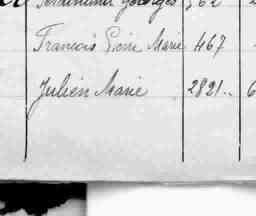 Ferdinand Georges 562
François Pierre Marie 467
Julien Marie 2821.. 6